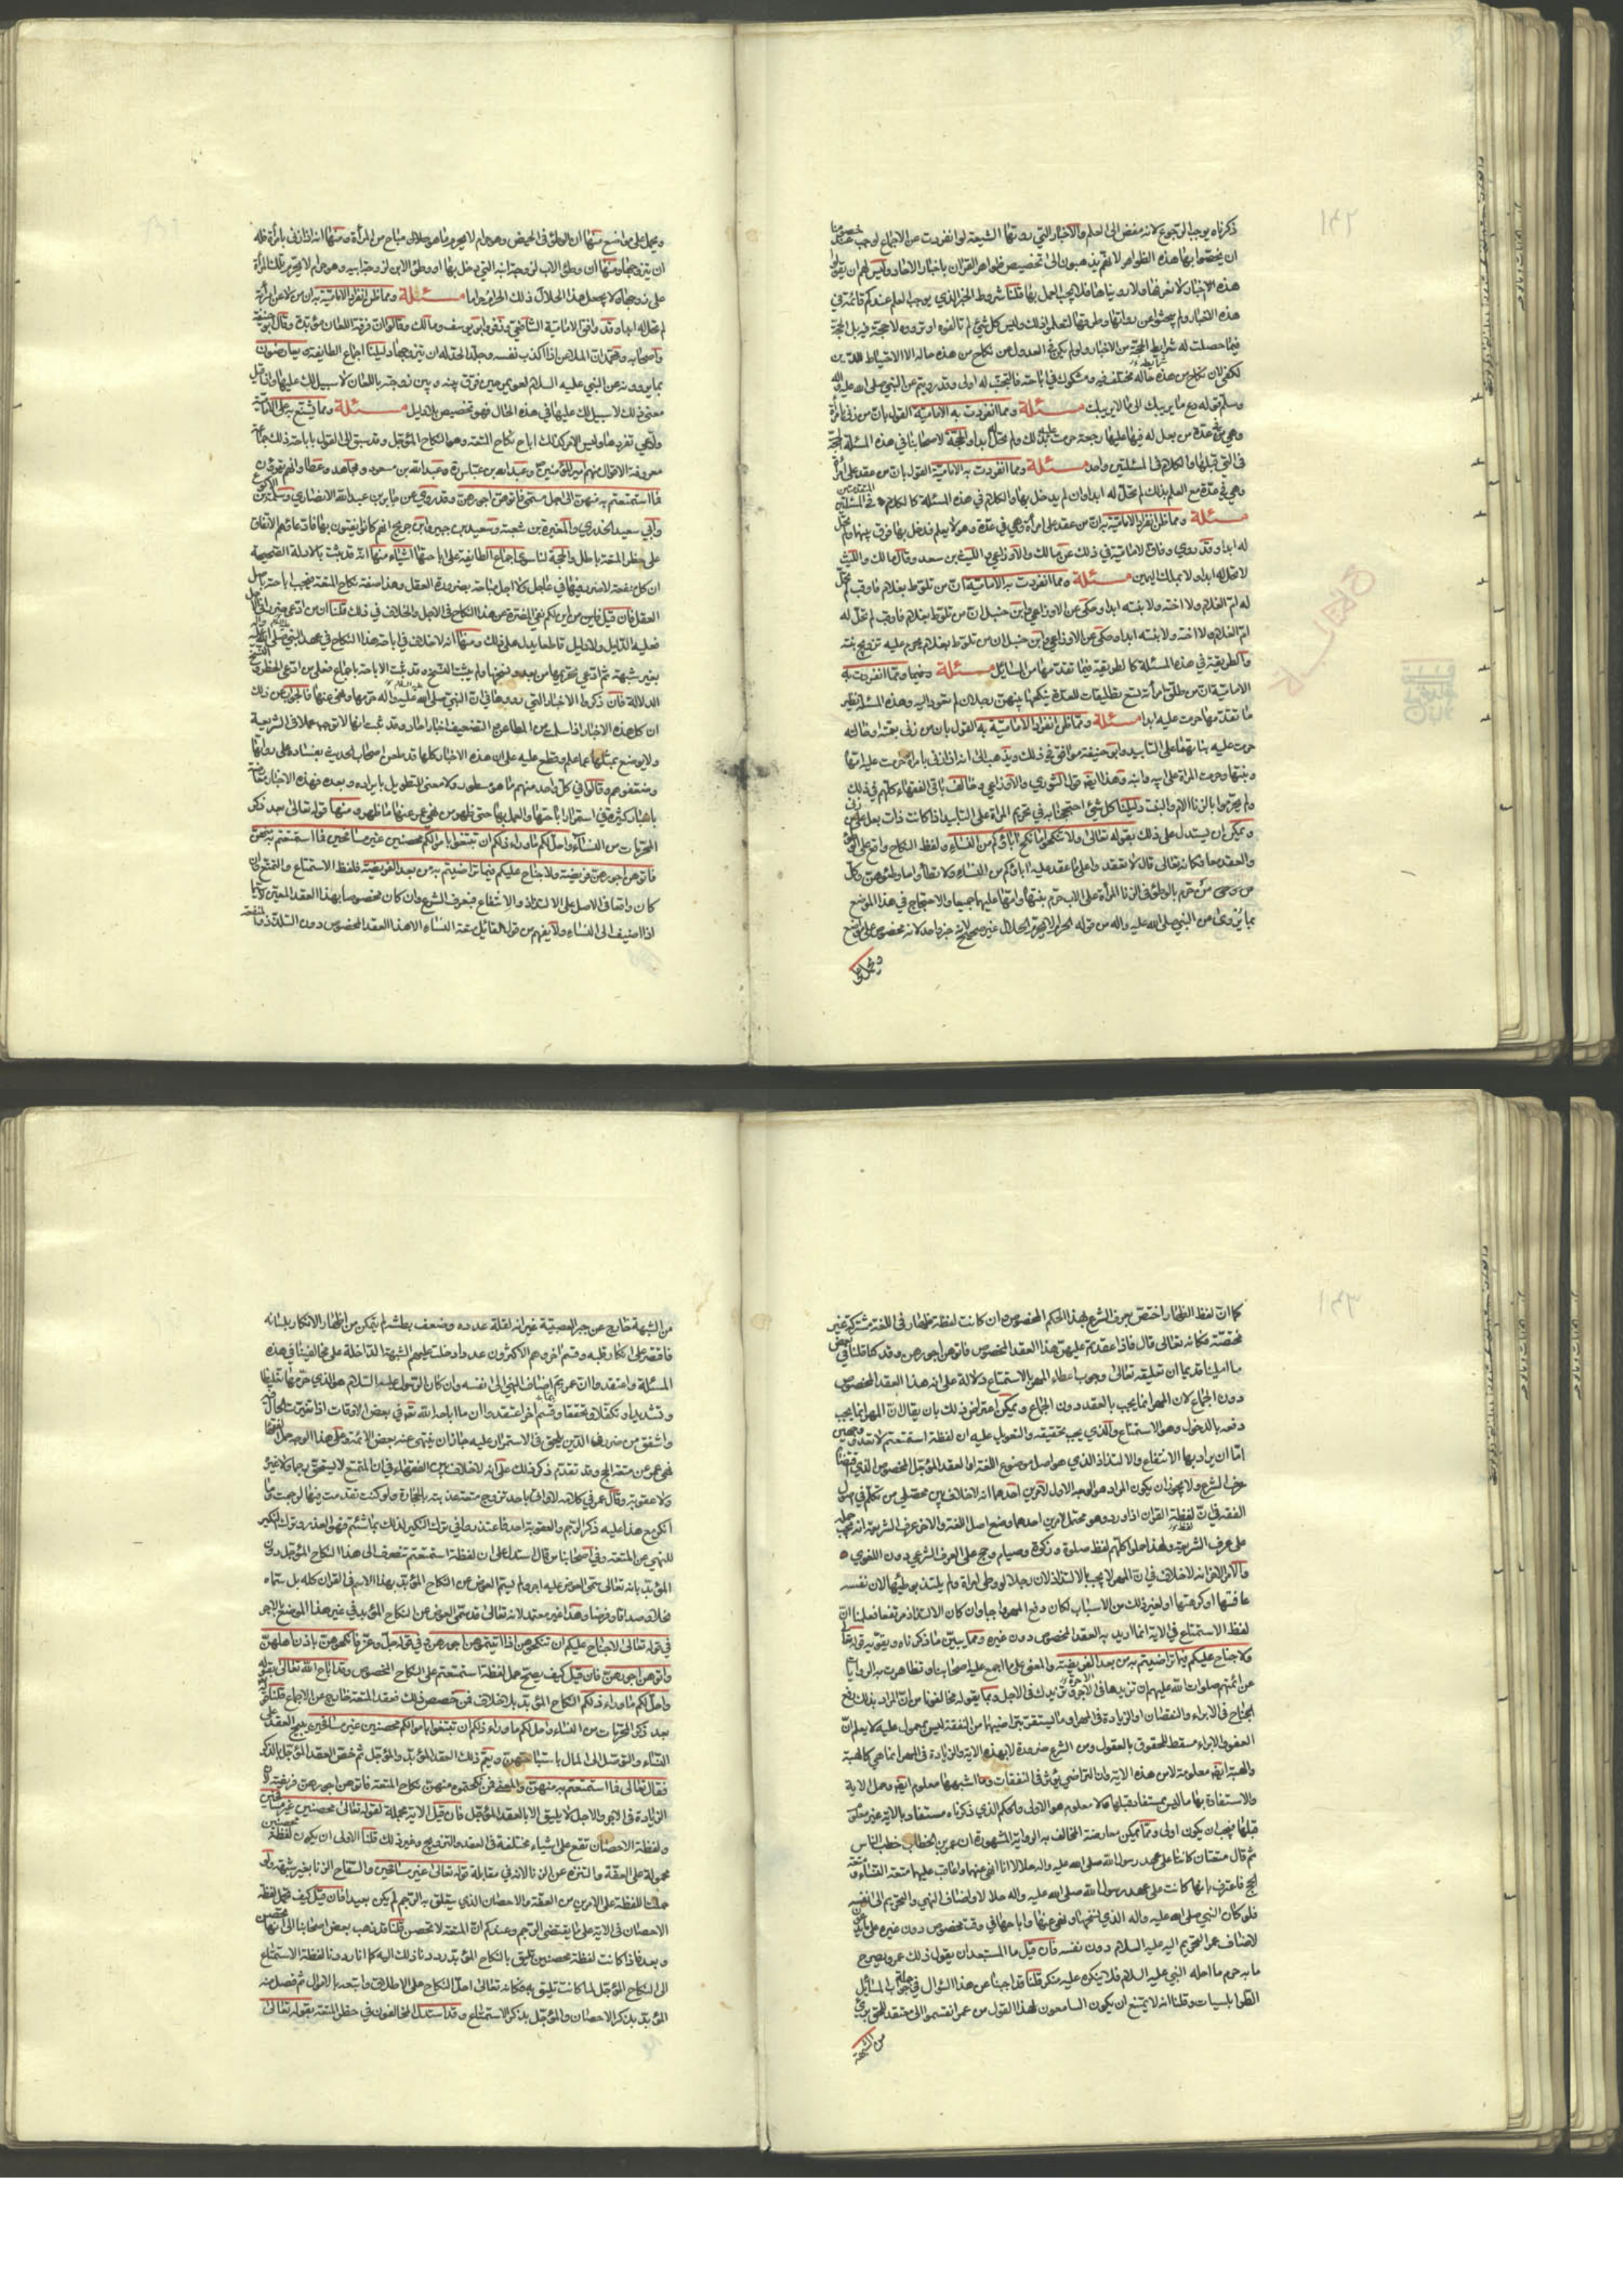 ذكرناه يوجب الرجوع لانه مفض الى العلم والاخبار التي روتها الشيعة لو انفردت عن الاجماع لوجب عند خصومنا
ان يخصوا بها هذه الظواهر لانهم يذهبون الى تخصيص ظواهر القرآن باخبار الاحاد وليس لهم ان يقولوا
هذه الاخبار لا نعرفها ولا رويناها فلا يجب العمل بها قلنا شروط الخبر الذي يوجب العلم عندكم قائمة في
هذه الاخبار ولم يبحثوا عن رواتها وطرقها لتعلموا ذلك وليس كل شئ لم تالفوه او ترووه لا حجة فيه بل الحجة
فيما حصلت له شرايط الحجة من الاخبار ولو لم يكن في العدول عن نكاح من هذه حاله الا الاحتياط للدين
لكفى لان نكاح من هذه حاله مختلف فيه ومشكوك في اباحته فالتجنب له اولى وقد رويتم عن النبي صلى الله عليه واله
وسلم قوله دع ما يريبك الى ما لا يريبك مسئلة ومما انفردت به الامامية القول بان من زنى بامرأة
وهي في عدة من بعل له فيها عليها رجعة حرمت عليه بذلك ولم تحل له ابدا والحجة لاصحابنا في هذه المسئلة الحجة
في التي قبلها والكلام في المسئلتين واحد مسئلة ومما انفردت به الامامية القول بان من عقد على امرأة
وهي في عدة مع العلم بذلك لم تحل له ابدا وان لم يدخل بها والكلام في هذه المسئلة كالكلام في المسئلتين المتقدمتين
مسئلة ومما ظن انفراد الامامية به ان من عقد على امرأة وهي في عدة وهو لا يعلم فدخل بها فرق بينهما ولم تحل
له ابدا وقد روي وفاق الامامية في ذلك عن مالك والاوزاعي والليث بن سعد وقال مالك والليث
لا تحل له ابدا ولا بملك اليمين مسئلة ومما انفردت به الامامية ان من تلوط بغلام فاوقب لم تحل
له ام الغلام ولا اخته ولا بنته ابدا وحكى عن الاوزاعي وابن حنبل ان من تلوط بغلام فاوقب لم تحل له
ام الغلام ولا اخته ولا بنته ابدا وحكى عن الاوزاعي وابن حنبل ان من تلوط بغلام يحرم عليه تزويج بنته
والطريقة في هذه المسئلة كالطريقة فيما تقدمها من المسائل مسئلة ومما انفردت به
الامامية ان من طلق امرأة تسع تطليقات للعدة ينكحها بينهن رجلان لم تعود اليه وهذه المسئلة نظير
ما تقدم مها حرمت عليه ابدا مسئلة ومما ظن انفراد الامامية به القول بان من زنى بعمته او خالته
حرمت عليه بناتهما على التابيد وابو حنيفة موافق في ذلك ويذهب الى انه اذا زنى بامرأة حرمت عليه امها
وبنتها وحرمت المرأة على ابيه وابنه وهذا ايضا قول الثوري والاوزاعي وخالف باقي الفقهاء كلهم في ذلك
ولم يحرموا بالزنا الام والبنت دليلنا كل شئ احتججنا به في تحريم المرأة على التابيد اذا كانت ذات بعل على من زنى
ويمكن ان يستدل على ذلك بقوله تعالى ولا تنكحوا ما نكح اباؤكم من النساء ولفظ النكاح واقع على الوطئ
والعقد معا فكانه تعالى قال لا تعقدوا على ما عقد عليه اباؤكم من النساء ولا تطأوا ما وطئوهن وكل
من حرم بالوطئ في الزنا المرأة على الاب حرم بنتها وامها عليهما جميعا والاحتجاج في هذا الموضع
بما يروى عن النبي صلى الله عليه واله من قوله الحرام لا يحرم الحلال غير صحيح لانه خبر واحد لانه مخصوص على مواضع
ويحمل على مواضع منها ان الوطئ في الحيض وهو حرام لا يحرم ما هو حلال مباح من المرأة ومنها انه اذا زنى بامرأة فله
ان يتزوجها ومنها ان وطئ الاب لزوجة ابنه التي دخل بها او وطئ الابن لزوجة ابيه وهو حرام لا يحرم تلك المرأة
على زوجها ولا يجعل هذا الحلال ذلك الحرام حراما مسئلة ومما ظن انفراد الامامية به ان من لاعن امرأة
لم تحل له ابدا وقد وافق الامامية الشافعي وزفر وابو يوسف ومالك وقالوا ان فرقة اللعان مؤبدة وقال ابو حنيفة
واصحابه ومحمد ان الملاعن اذا اكذب نفسه وجلد الحد له ان يتزوجها دليلنا اجماع الطايفة ويعارضون
بما يروونه عن النبي عليه السلام لعويمر حين فرق بينه وبين زوجته باللعان لا سبيل لك عليها واذا قيل
معنى ذلك لا سبيل لك عليها في هذه الحال فهو تخصيص بلا دليل مسئلة ومما يشنع به على الامامية
وادعي تفردها وليس الامر كذلك اباح نكاح المتعة وهو النكاح المؤجل وقد سبق الى القول باباحته ذلك جماعة
معروفة الاقوال منهم امير المؤمنين وعبد الله بن عباس وعبد الله بن مسعود ومجاهد وعطا وانهم يقرؤن
فما استمتعتم به منهن الى اجل مسمى فاتوهن اجورهن وقد روي عن جابر بن عبد الله الانصاري وسلمة بن الاكوع
وابي سعيد الخدري والمغيرة بن شعبة وسعيد بن جبير وابن جريج انهم كانوا يفتون بها فادعاؤهم الاتفاق
على حظر المتعة باطل والحجة لنا سوى اجماع الطايفة على اباحتها اشياء منها انه قد ثبت بالادلة الصحيحة
ان كل منفعة لا ضرر فيها في عاجل ولا اجل مباحة بضرورة العقل وهذا صفة نكاح المتعة فيجب اباحته باصل
العقل فان قيل فمن اين لكم نفي المضرة عن هذا النكاح في الاجل والخلاف في ذلك قلنا من ادعى ضررا في الاجل
فعليه الدليل ولا دليل قاطعا يدل على ذلك ومنها انه لا خلاف في اباحة هذا النكاح في عهد النبي صلى الله عليه واله
بغير شبهة ثم ادعي تحريمها من بعد ونسخها ولم يثبت النسخ وقد ثبت الاباحة باجماع فعلى من ادعى الحظر والنسخ
الدلالة فان ذكروا الاخبار التي رووها في ان النبي صلى الله عليه واله حرمها ونهى عنها فالجواب عن ذلك
ان كل هذه الاخبار اذا سلمت من المطاعن والتضعيف اخبار احاد وقد ثبت انها لا توجب عملا في الشريعة
ولا يرجع بمثلها عما علم وقطع عليه على ان هذه الاخبار كلها قد طعن اصحاب الحديث ونقاده على رواتها
وضعفوهم وقالوا في كل واحد منهم ما هو مسطور ولا معنى للتطويل بايراده وبعد فهذه الاخبار معارضة
باخبار كثيرة في استمرار اباحتها والعمل بها حتى ظهر من نهي عمر عنها ما ظهر ومنها قوله تعالى بعد ذكر
المحرمات من النساء واحل لكم ما وراء ذلكم ان تبتغوا باموالكم محصنين غير مسافحين فما استمتعتم به منهن
فاتوهن اجورهن فريضة ولا جناح عليكم فيما تراضيتم به من بعد الفريضة فلفظ الاستمتاع والتمتع وان
كان واقعا في الاصل على الالتذاذ والانتفاع فبعرف الشرع وان كان مخصوصا بهذا العقد المعين لا سيما
اذا اضيف الى النساء ولا يفهم من قول القائل متعة النساء الا هذا العقد المخصوص دون التلذذ والمنفعة
كما ان لفظ الظهار اختص بعرف الشرع بهذا الحكم المخصوص وان كانت لفظة ظهار في اللغة مشتركة غير
مختصة فكانه تعالى قال فاذا عقدتم عليهن هذا العقد المخصوص فاتوهن اجورهن وقد كنا قلنا في بعض
ما امليناه قديما ان تعليقه تعالى وجوب اعطاء المهر بالاستمتاع دلالة على ان هذا العقد المخصوص
دون الجماع لان المهر انما يجب بالعقد دون الجماع ويمكن اعتراض ذلك بان يقال ان المهر انما يجب
دفعه بالدخول وهو الاستمتاع والذي يجب تحقيقه والتعويل عليه ان لفظة استمتعتم لا تعدو وجهين
اما ان يراد بها الانتفاع والالتذاذ الذي هو اصل موضوع اللغة او العقد المؤجل المخصوص الذي اقتضاه
عرف الشرع ولا يجوز ان يكون المراد هو الوجه الاول لامرين احدهما انه لا خلاف بين محصلي من تكلم في اصول
الفقه في ان لفظة القران اذا ورد وهو محتمل لامرين احدهما وضع اصل اللغة والاخر عرف الشريعة انه يجب حمله
على عرف الشريعة ولهذا حملوا كلهم لفظ صلوة وزكوة وصيام وحج على العرف الشرعي دون اللغوي
والامر الاخر انه لا خلاف في ان المهر لا يجب بالالتذاذ لان رجلا لو وطئ امرأة ولم يلتذ بوطيها لان نفسه
عافتها او كرهتها او لغير ذلك من الاسباب لكان دفع المهر واجبا وان كان الالتذاذ مرتفعا فعلمنا ان
لفظ الاستمتاع في الاية انما اريد به العقد المخصوص دون غيره ومما يبين ما ذكرناه ويقويه قوله تعالى
ولا جناح عليكم فيما تراضيتم به من بعد الفريضة والمعنى على ما اجمع عليه اصحابنا وتظاهرت به الروايات
عن ائمتهم صلوات الله عليهم ان تزيدها في الاجر وتزيدك في الاجل وما يقوله مخالفونا من ان المراد بذلك رفع
الجناح في الابراء والنقصان او الزيادة في المهر او ما يستقر بتراضيهما من النفقة ليس بمعول عليه لانا نعلم ان
العفو والابراء مسقط للحقوق بالعقول ومن الشرع ضرورة لا بهذه الاية والزيادة في المهر انما هي كالهبة
والهبة ايضا معلومة لا من هذه الاية وان التراضي يؤثر في النفقات وما اشبهها معلوم ايضا وحمل الاية
والاستفادة بها ما ليس بمستفاد قبلها ولا معلوم هو الاولى والحكم الذي ذكرناه مستفاد بالاية غير معلوم
قبلها فيجب ان يكون اولى ومما يمكن معارضة المخالف به الرواية المشهورة ان عمر بن الخطاب خطب الناس
ثم قال متعتان كانتا على عهد رسول الله صلى الله عليه واله حلالا انا انهى عنهما واعاقب عليهما متعة النساء ومتعة
الحج فاعترف بانها كانت على عهد رسول الله صلى الله عليه واله حلالا واضاف النهي والتحريم الى نفسه
فلو كان النبي صلى الله عليه واله الذي نسخها ونهى عنها واباحها في وقت مخصوص دون غيره على ما يدعون
لاضاف عمر التحريم اليه عليه السلام دون نفسه فان قيل ما المستبعد ان يقول ذلك عمر ويصرح
ما به حرم ما احله النبي عليه السلام فلا ينكره عليه منكر قلنا قد اجبنا عن هذا السؤال في جملة جواب المسائل
الطرابلسيات وقلنا انه لا يمتنع ان يكون السامعون لهذا القول من عمر انقسموا الى معتقد للحق بريئ
من الشبهة
من الشبهة خارج عن حيز العصبية غير انه لقلة عدده وضعف بطشه لم يتمكن من اظهار الانكار بلسانه
فاقتصر على انكار قلبه وقسم اخر وهم الاكثرون عددا دخلت عليهم الشبهة الداخلة على مخالفينا في هذه
المسئلة واعتقدوا ان عمر انما اضاف النهي الى نفسه وان كان الرسول عليه السلام هو الذي حرمها تغليظا
وتشديدا وتكفلا وتحققا وقسم اخر اعتقدوا ان ما اباحه الله تعالى في بعض الاوقات اذا تغيرت الحال فيه
واشفق من ضرر في الدين يلحق في الاستمرار عليه جاز ان ينهى عنه بعض الائمة وعلى هذا الوجه حمل الفقهاء
نهي عمر عن متعة الحج وقد تقدم ذكر ذلك على انه لا خلاف بين الفقهاء في ان المتمتع لا يستحق رجما ولا غيره
ولا عقوبة وقال عمر في كلامه لا اوتى باحد تزوج متعة الا عذبته بالحجارة ولو كنت تقدمت فيها لرجمت وما
انكر مع هذا عليه ذكر الرجم والعقوبة احد فاعتذروا في ترك النكير لذلك بما شئتم فهو العذر في ترك النكير
للنهي عن المتعة وفي اصحابنا من قال استدل على ان لفظة استمتعتم تنصرف الى هذا النكاح المؤجل دون
المؤبد بانه تعالى سمى العوض عليه اجرا ولم يسم العوض عن النكاح المؤبد بهذا الاسم في القران كله بل سماه
نحلة وصداقا وفرضا وهذا غير معتمد لانه تعالى قد سمى العوض عن النكاح المؤبد في غير هذا الموضع بالاجر
في قوله تعالى لا جناح عليكم ان تنكحوهن اذا اتيتموهن اجورهن وفي قوله جل وعز فانكحوهن باذن اهلهن
واتوهن اجورهن فان قيل كيف يصح حمل لفظة استمتعتم على النكاح المخصوص وقد اباح الله تعالى بقوله
واحل لكم ما وراء ذلكم النكاح المؤبد بلا خلاف فمن خصص ذلك بعقد المتعة خارج عن الاجماع قلنا قوله تعالى
بعد ذكر المحرمات من النساء واحل لكم ما وراء ذلكم ان تبتغوا باموالكم محصنين غير مسافحين يبيح العقد على
النساء والتوصل الى المال باستباحتهن ويعم ذلك العقد المؤبد والمؤجل ثم خص العقد المؤجل بالذكر
فقال تعالى فما استمتعتم به منهن والمعنى فمن نكحتموه منهن نكاح المتعة فاتوهن اجورهن فريضة
الزيادة في الاجر والاجل لا يليق الا بالعقد المؤجل فان قيل الاية مجملة لقوله تعالى محصنين غير مسافحين
ولفظة الاحصان تقع على اشياء مختلفة في العقد والتزويج وغير ذلك قلنا الاولى ان يكون لفظة محصنين
محمولة على العفة والتنزه عن الزنا لانه في مقابلة قوله تعالى غير مسافحين والسفاح الزنا بغير شبهة ولو
حملت اللفظة على الامرين من العفة والاحصان الذي يتعلق به الرجم لم يكن بعيدا فان قيل كيف تحمل لفظة
الاحصان في الاية على ما يقتضي الرجم وعندكم ان المتعة لا تحصن قلنا قد ذهب بعض اصحابنا الى انها تحصن
وبعد فاذا كانت لفظة محصنين تليق بالنكاح المؤبد رددنا ذلك اليه كما انا رددنا لفظة الاستمتاع
الى النكاح المؤجل لما كانت تليق به فكانه تعالى احل النكاح على الاطلاق وابتغاه بالاموال ثم فصل منه
المؤبد بذكر الاحصان والمؤجل بذكر الاستمتاع وقد استدل المخالفون في حظر المتعة بقوله تعالى